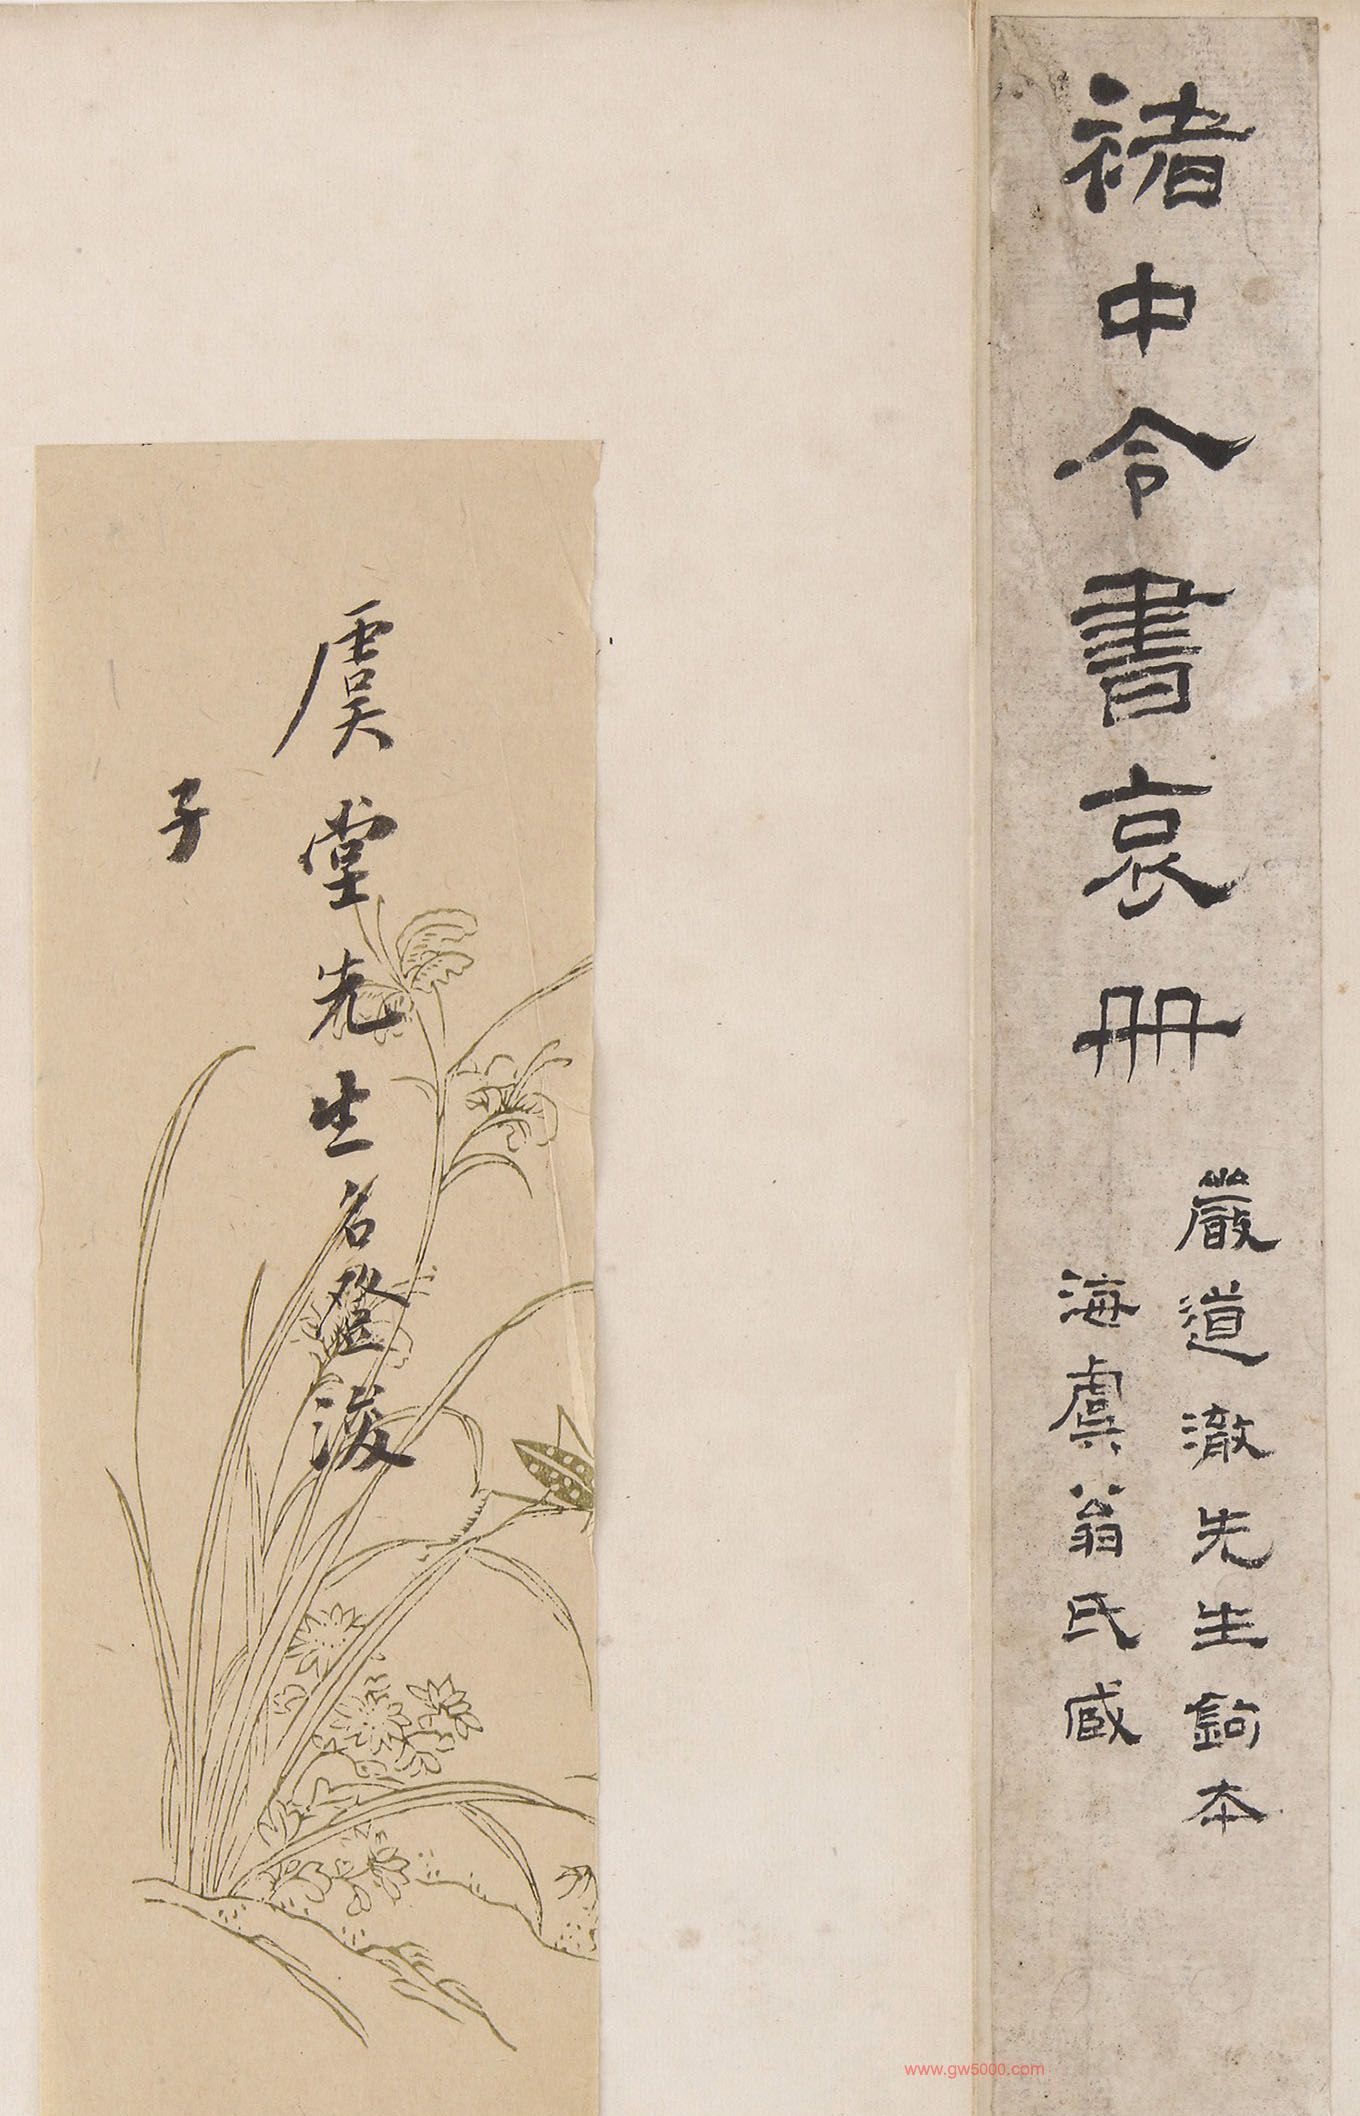 褚中令書哀冊
嚴道澈先生鉤本
海虞翁氏臧
虞堂先生名登浚
子
www.gw5000.com